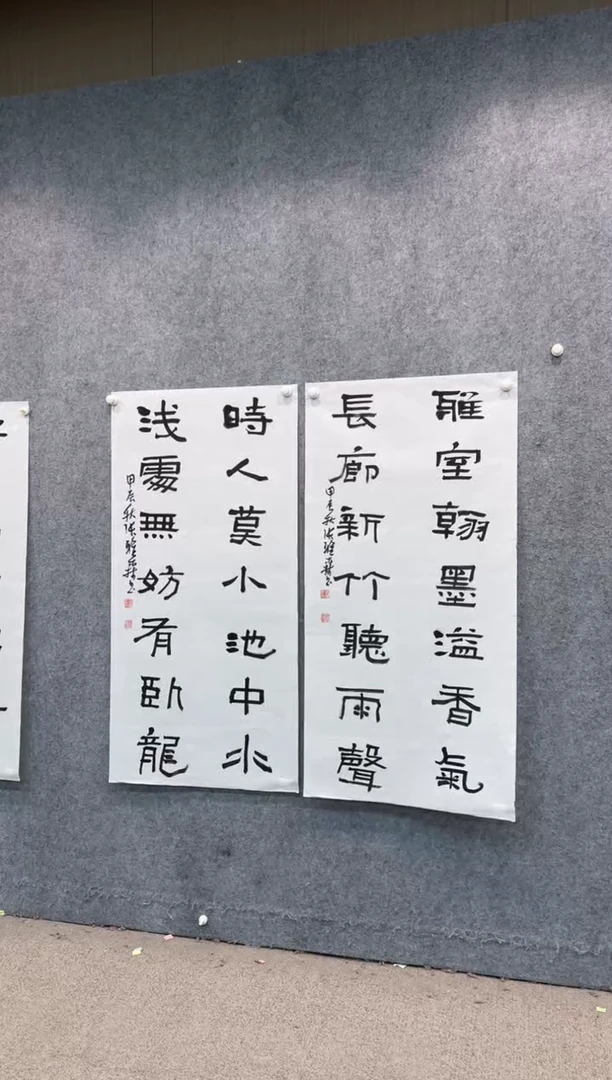 雅室翰墨溢香氣
長廊新竹聽雨聲
甲辰秋
時人莫小池中水
浅處無妨有臥龍
甲辰秋